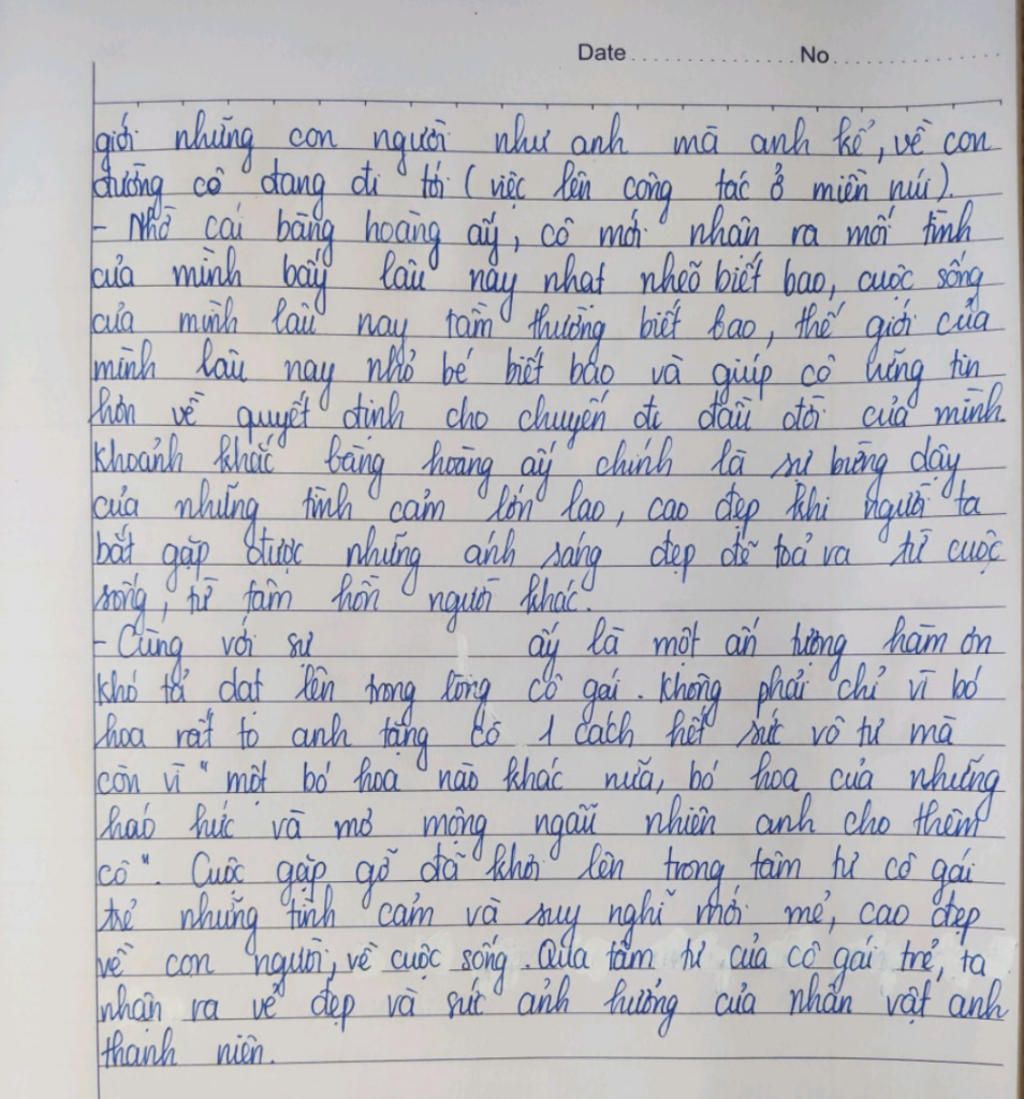 Date No
giới những con người như anh mà anh kể, về con
đường cô đang đi tới (việc lên công tác ở miền núi).
- Nhờ cái bàng hoàng ấy, cô mới nhận ra mối tình
của mình bấy lâu nay nhạt nhẽo biết bao, cuộc sống
của mình lâu nay tầm thường biết bao, thế giới của
mình lâu nay nhỏ bé biết bao và giúp cô vững tin
hơn về quyết định cho chuyến đi đầu đời của mình.
Khoảnh khắc bàng hoàng ấy chính là sự bừng dậy
của những tình cảm lớn lao, cao đẹp khi người ta
bắt gặp được những ánh sáng đẹp đẽ toả ra từ cuộc
sống, từ tâm hồn người khác.
- Cùng với sự ấy là một ấn tượng hàm ơn
khó tả dạt lên trong lòng cô gái. Không phải chỉ vì bó
hoa rất to anh tặng cô 1 cách hết sức vô tư mà
còn vì "một bó hoa nào khác nữa, bó hoa của những
háo hức và mơ mộng ngẫu nhiên anh cho thêm
cô". Cuộc gặp gỡ đã khơi lên trong tâm tư cô gái
trẻ những tình cảm và suy nghĩ mới mẻ, cao đẹp
về con người, về cuộc sống. Qua tâm tư của cô gái trẻ, ta
nhận ra vẻ đẹp và sức ảnh hưởng của nhân vật anh
thanh niên.